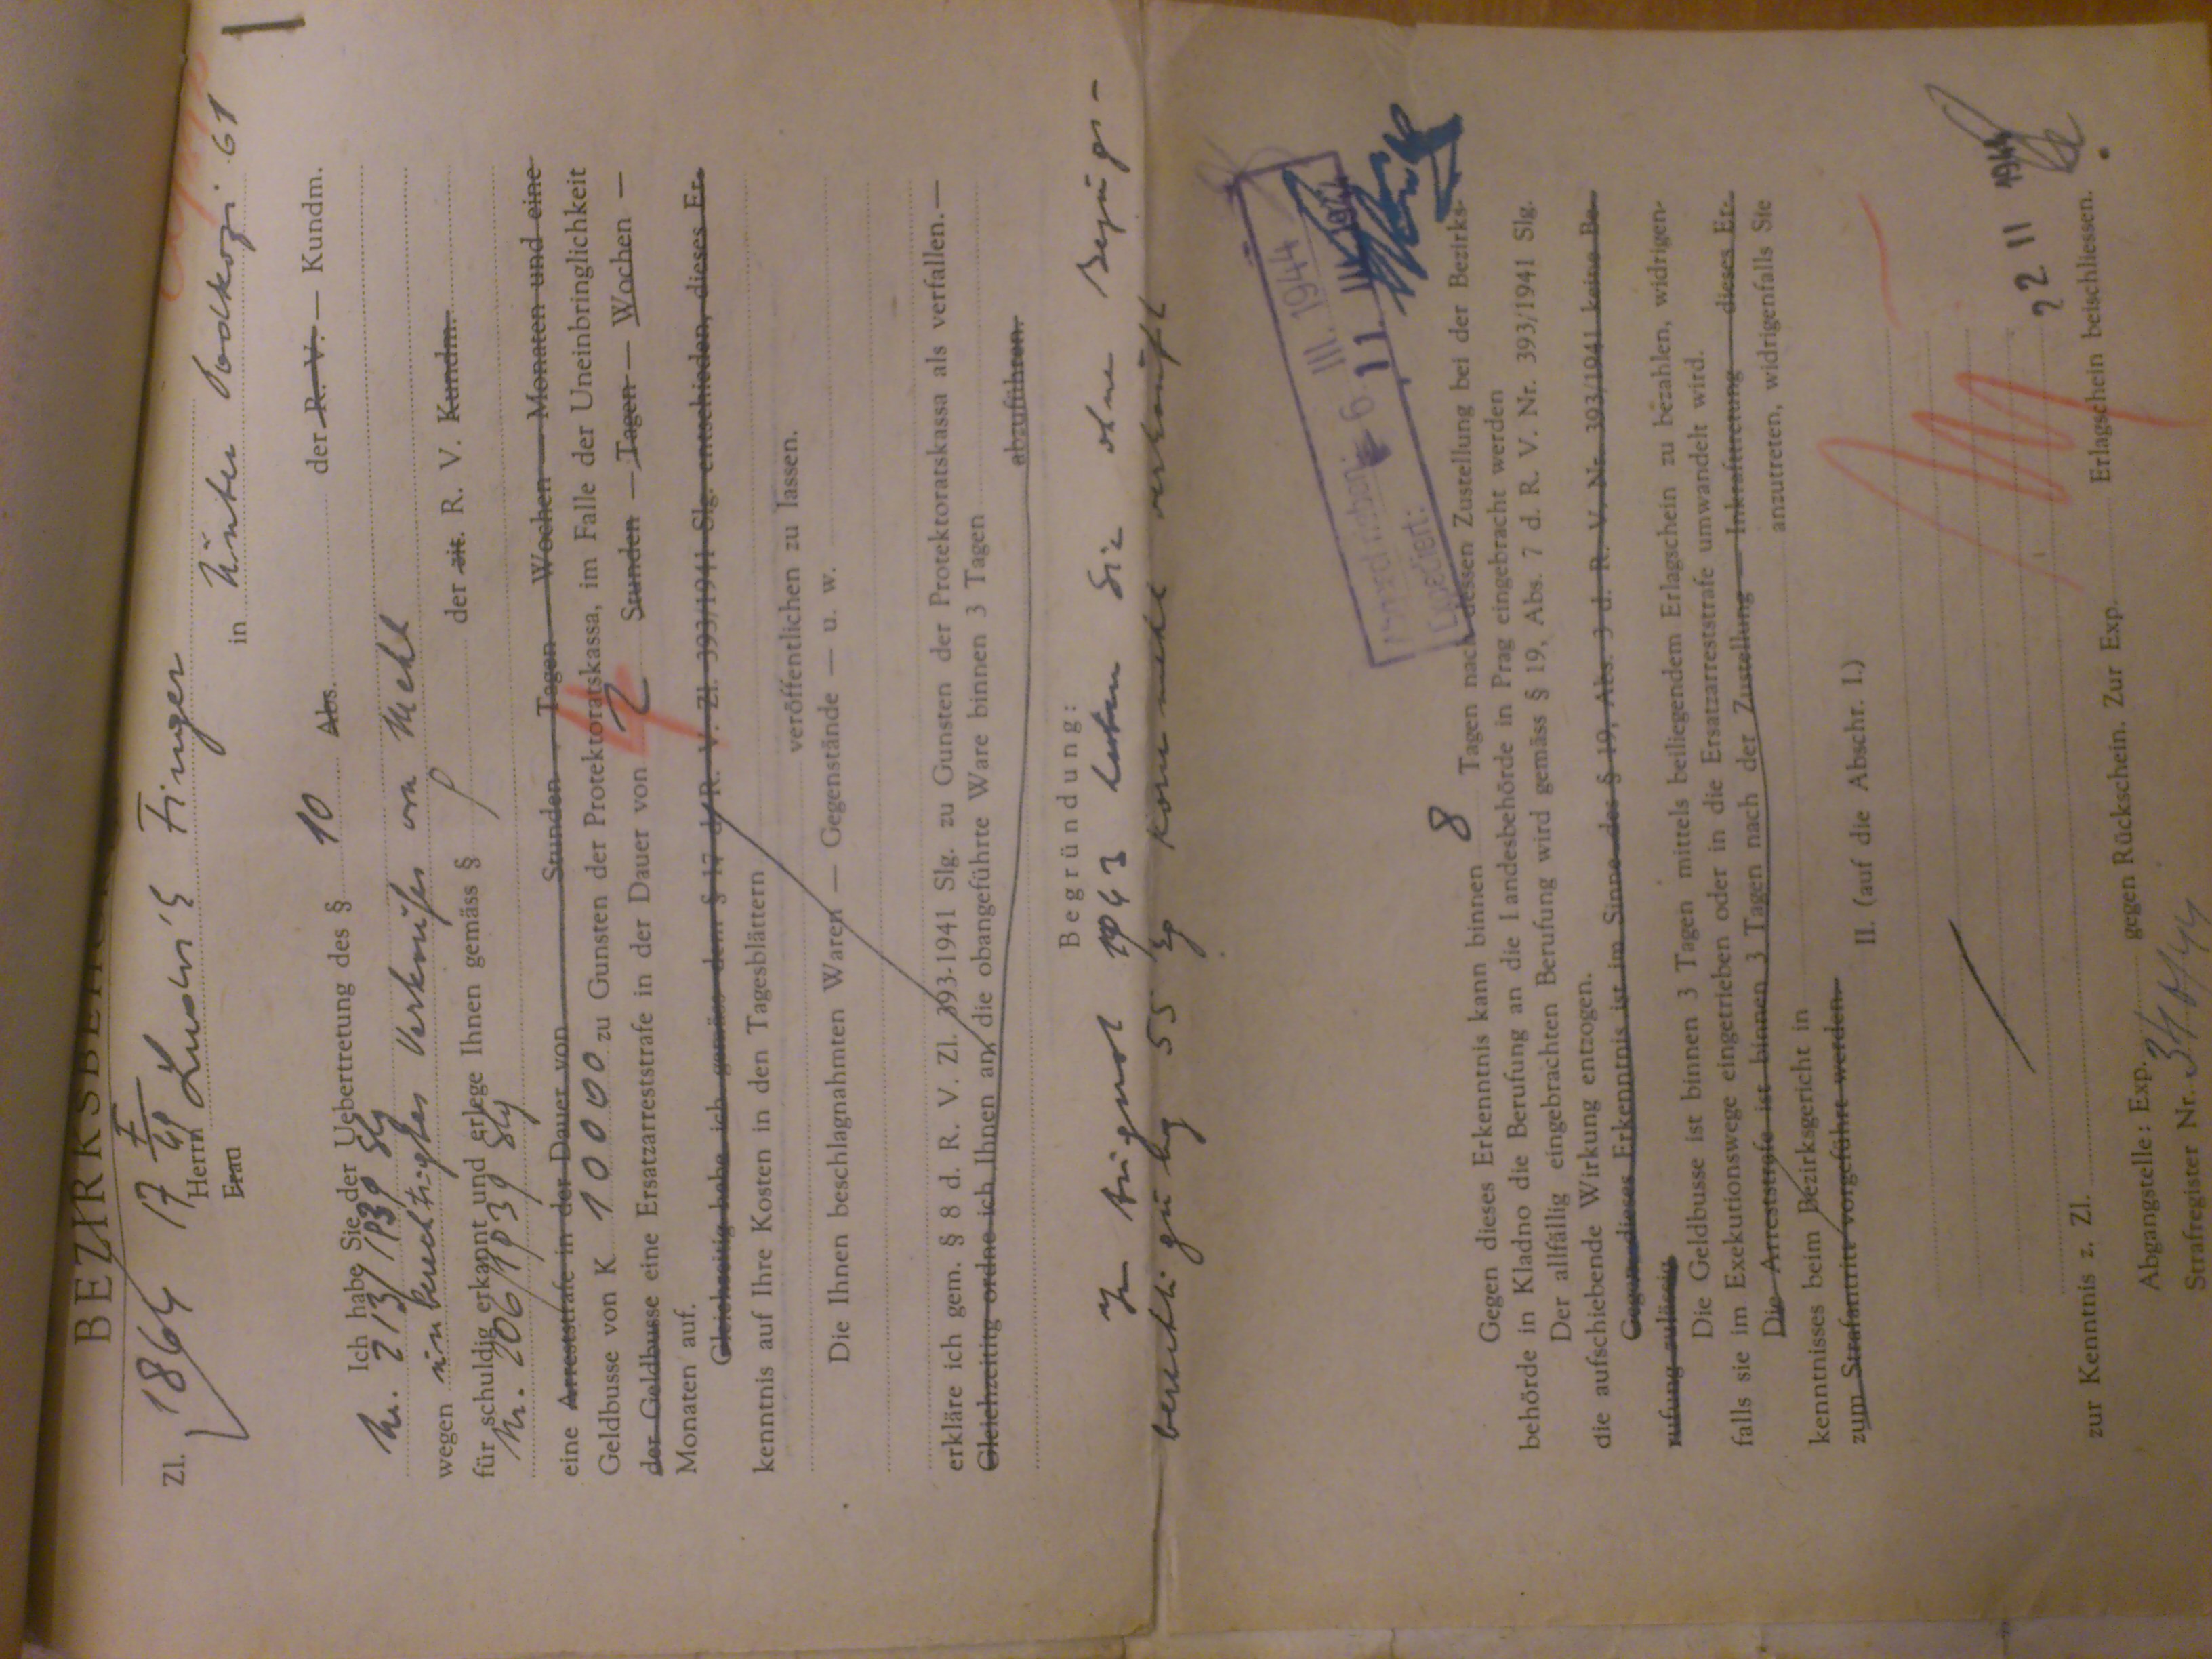 BEZIRKSBEHÖR
Zl. 1864 17
Herrn Ludwik Finger
Frau
in Unter Podkozi 61
Ich habe Sie der Uebertretung des § 10 Abs. der R. V. — Kundm.
Nr. 213/1939 Slg
wegen unberechtigtes Verkaufes von Mehl
für schuldig erkannt und erlege Ihnen gemäss § der zit. R. V. Kundm.
Nr. 206/1939 Slg
eine Arreststrafe in der Dauer von Stunden — Tagen — Wochen — Monaten und eine
Geldbusse von K 10000 zu Gunsten der Protektoratskassa, im Falle der Uneinbringlichkeit
der Geldbusse eine Ersatzarreststrafe in der Dauer von 2 4 Stunden — Tagen — Wochen —
Monaten auf.
Gleichzeitig habe ich gemäss dem § 17 d. R. V. Zl. 393/1941 Slg. entschieden, dieses Er-
kenntnis auf Ihre Kosten in den Tagesblättern
veröffentlichen zu lassen.
Die Ihnen beschlagnahmten Waren — Gegenstände — u. w.
erkläre ich gem. § 8 d. R. V. Zl. 393-1941 Slg. zu Gunsten der Protektoratskassa als verfallen.—
Gleichzeititg ordne ich Ihnen an, die obangeführte Ware binnen 3 Tagen
abzuführen.
Begründung:
Im August 1943 haben Sie ohne Bezugs-
berechtigung 55 kg Kornmehl verkauft
Abgeschrieben: 6 III. 1944
Expediert: 11. III. 1944
Gegen dieses Erkenntnis kann binnen 8 Tagen nach dessen Zustellung bei der Bezirks-
behörde in Kladno die Berufung an die Landesbehörde in Prag eingebracht werden
Der allfällig eingebrachten Berufung wird gemäss § 19, Abs. 7 d. R. V. Nr. 393/1941 Slg.
die aufschiebende Wirkung entzogen.
Gegen dieses Erkenntnis ist im Sinne des § 19, Abs. 3 d. R. V. Nr. 393/1941 keine Be-
rufung zulässig
Die Geldbusse ist binnen 3 Tagen mittels beiliegendem Erlagschein zu bezahlen, widrigen-
falls sie im Exekutionswege eingetrieben oder in die Ersatzarreststrafe umwandelt wird.
Die Arreststrafe ist binnen 3 Tagen nach der Zustellung — Inkrafttretung dieses Er-
kenntnisses beim Bezirksgericht in anzutreten, widrigenfalls Sie
zum Strafantritt vorgeführt werden.
II. (auf die Abschr. I.)
22 II 1944
zur Kenntnis z. Zl.
Abgangstelle: Exp. gegen Rückschein. Zur Exp. Erlagschein beischliessen.
Strafregister Nr. 340/44